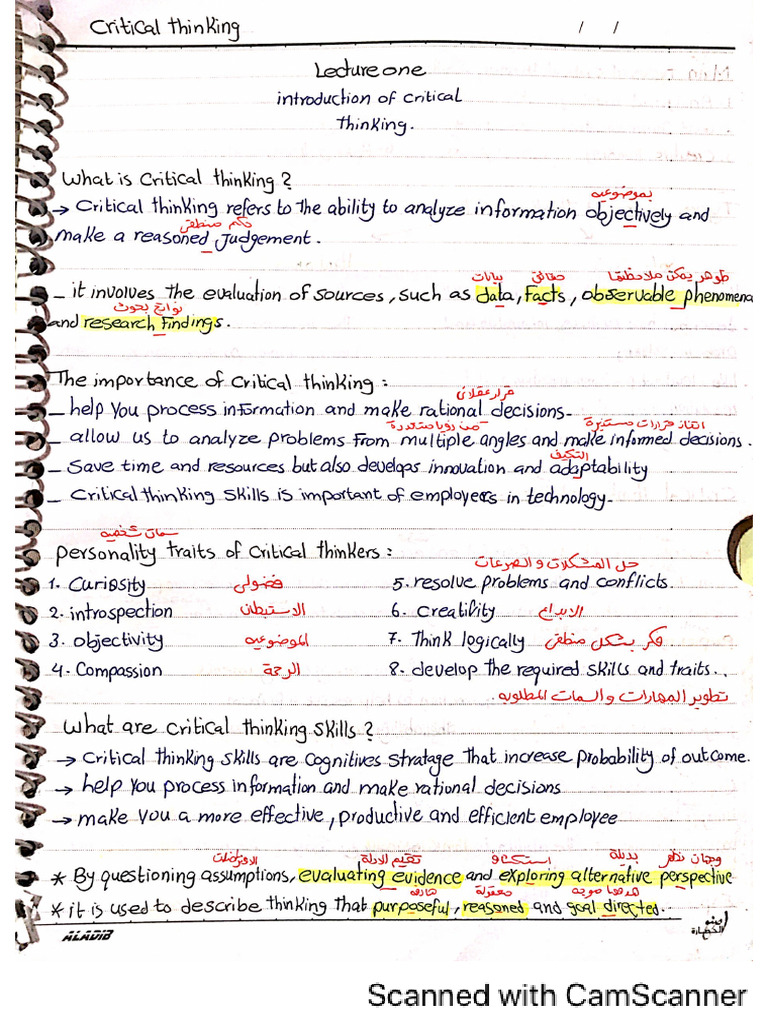 Critical thinking / /
Lecture one
introduction of critical
thinking.
What is critical thinking?
بموضوعيه
→ Critical thinking refers to the ability to analyze information objectively and
حكم منطقي
make a reasoned judgement.
بيانات حقائق ظواهر يمكن ملاحظتها
_ it involves the evaluation of sources, such as data, facts, observable phenomena
نواتج بحوث
and research findings.
The importance of critical thinking:
قرار عقلاني
_ help you process information and make rational decisions-
من رؤيا متعددة اتخاذ قرارات مستنيرة
_ allow us to analyze problems from multiple angles and make informed decisions.
التكيف
_ Save time and resources but also develops innovation and adaptability
_ Critical thinking skills is important of employees in technology-
سمات شخصيه
personality traits of critical thinkers:
حل المشكلات و الصرعات
1. Curiosity فضولي 5. resolve problems and conflicts.
2. introspection الاستبطان 6. Creativity الابداع
3. objectivity الموضوعيه 7. Think logically فكر بشكل منطقي.
4. Compassion الرحمة 8. develop the required skills and traits..
تطوير المهارات و السمات المطلوبه.
What are critical thinking skills?
→ Critical thinking skills are cognitives stratage that increase probability of outcome.
→ help you process information and make rational decisions
→ make you a more effective, productive and efficient employee
تقيم الادلة استكشاف بديلة وجهات نظر
* By questioning assumptions, evaluating evidence and exploring alternative perspective
هادفة معقولة
* it is used to describe thinking that purposeful, reasoned and goal directed.
ALADIB
Scanned with CamScanner